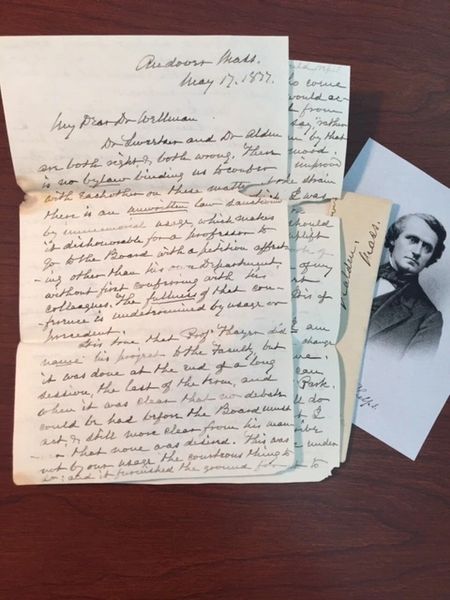 Andover Mass.
May 17. 1877.
My Dear Dr Wellman.
Dr. and Dr Alden
are both right & both wrong. There
is no bylaw binding us to confer
with each other on these matters
there is an unwritten law sanctioned
by immemorial usage, which makes
it dishonorable for a professor to
go to the Board with a petition affect-
-ing other than his own Department,
without first conferring with his
colleagues. The fullness of that con-
ference is undetermined by usage or
precedent.
Tis true that Prof. Thayer did
name his project to the Faculty but
it was done at the end of a long
session, the last of the term, and
when it was clear that no debate
could be had before the Board must
act, & still more clear from his man-
-ner that none was desired. This was
not by our usage the courteous thing to
do: and it furnished the ground for
to come
would ac-
from
say rather
by that
mood.
improve
strain
I was
should
of my
Dis of
I am
change
me.
can
Park.
do
I
under
to
Malden
Mass.
Phelps.